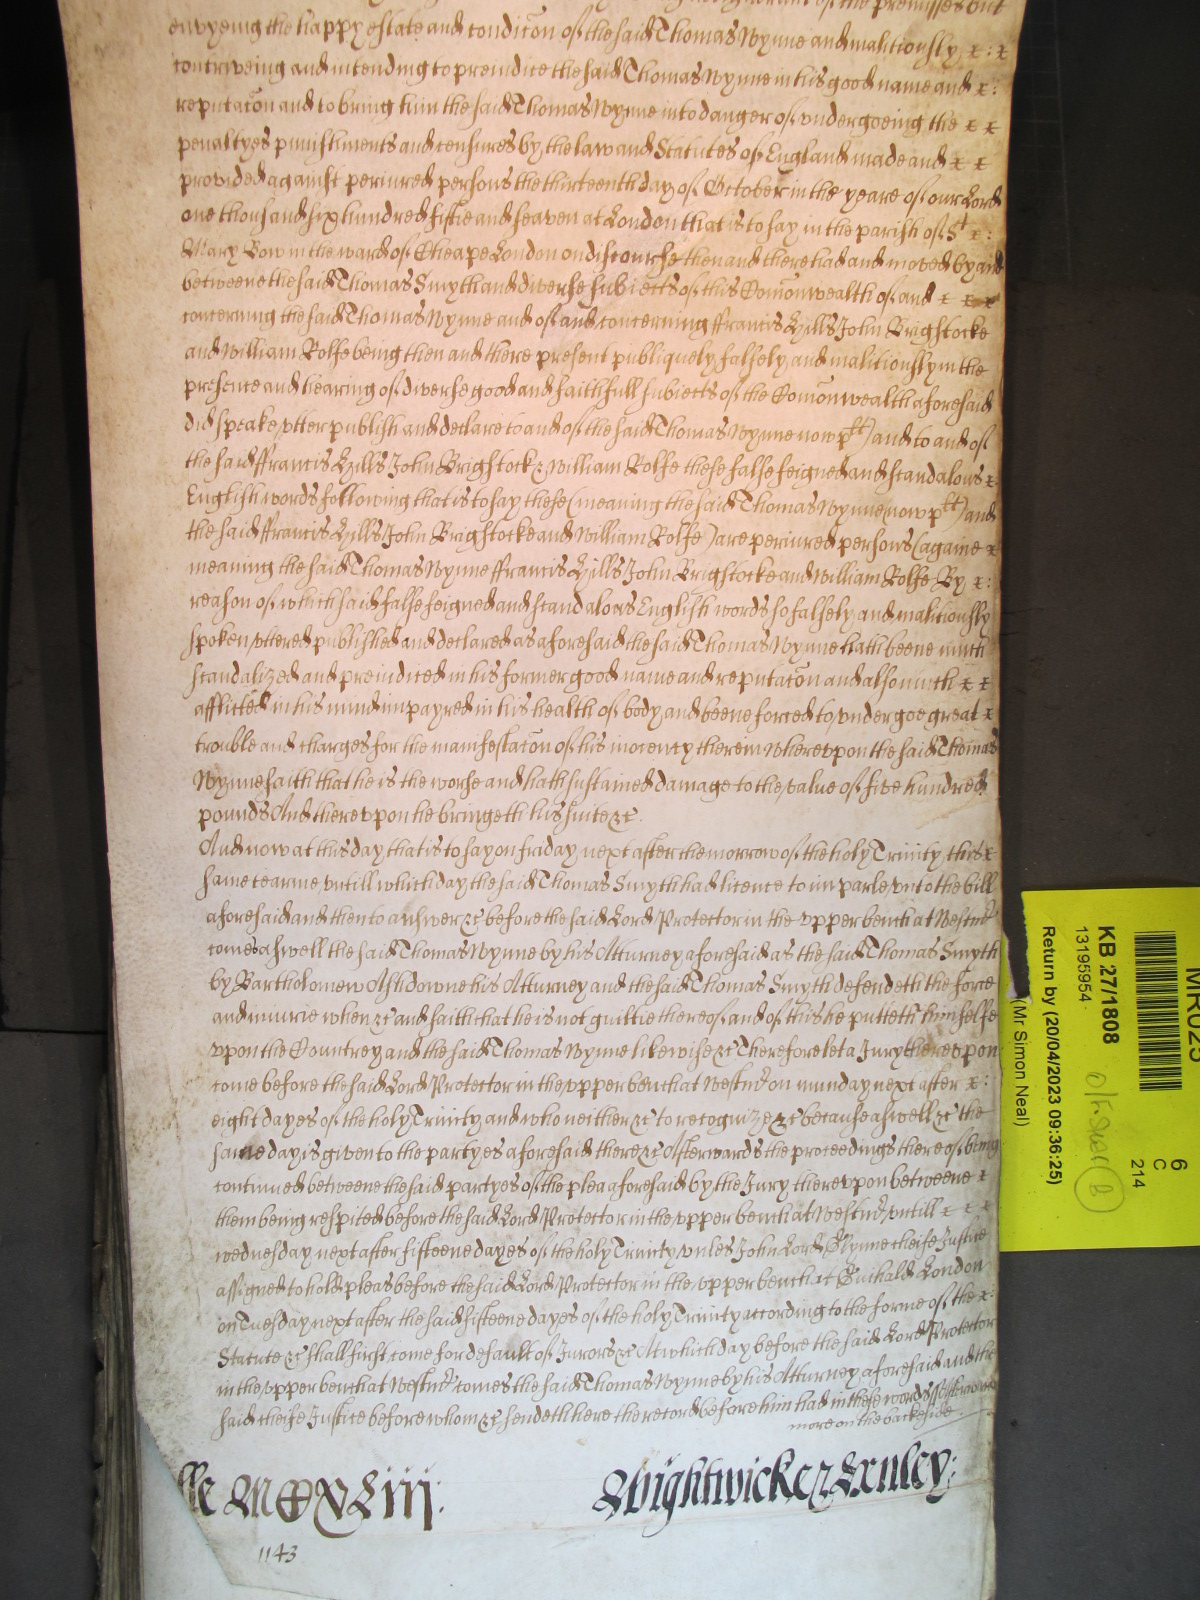 of the premisses but
envyeing the happy estate and condicōn of the said Thomas Wynne and malitiously x : x
contriveing and intending to preiudice the said Thomas Wynne in his good name and x :
reputacōn and to bring him the said Thomas Wynne into danger of undergoeing the x x
penaltyes punishments and censures by the law and Statutes of England made and x x
provided against periured persons the thirteenth day of October in the yeare of our Lord
one thousand six hundred fiftie and seaven at London that is to say in the parish of St x :
Mary Bow in the ward of Cheape London on discourse then and there had and moved by and
betweene the said Thomas Smyth and diverse subiects of this Comōnwealth of and x x
concerning the said Thomas Wynne and of and concerning ffrancis Hills John Brighstocke
and William Rolfe being then and there present publiquely falsely and malitiously in the
presence and heareing of diverse good and faithfull subiects of the Comōnwealth aforesaid
did speake utter publish and declare to and of the said Thomas Wynne now plt) and to and of
the said ffrancis Hills John Brighstock & William Rolfe these false feigned and scandalous x
English words following that is to say these (meaning the said Thomas Wynne now plt) and
the said ffrancis Hills John Brighstocke and William Rolfe) are periured persons (againe x
meaning the said Thomas Wynne ffrancis Hills John Brighstocke and William Rolfe By x :
reason of which said false feigned and scandalous English words so falsely and malitiously
spoken uttered published and declared as aforesaid the said Thomas Wynne hath beene much
scandalized and preiudiced in his former good name and reputacōn and also much x x
afflicted in his mind impayred in his health of body and beene forced to undergoe great x
trouble and charges for the manifestacōn of his inocency therein whereupon the said Thomas
Wynne saith that he is the worse and hath sustained damage to the value of five hundred
pounds And thereupon he bringeth his suite &c
And now at this day that is to say on friday next after the morrow of the holy Trinity this x
same tearme untill which day the said Thomas Smyth had licence to imparle unto the bill
aforesaid and then to answer &c before the said Lord Protector in the upper bench at Westmr
comes aswell the said Thomas Wynne by his Atturney aforesaid as the said Thomas Smyth
by Bartholomew Ashdowne his Atturney and the said Thomas Smyth defendeth the force
and iniurie when &c and saith that he is not guiltie thereof and of this he putteth himselfe
upon the Countrey and the said Thomas Wynne likewise &c Therefore let a Jury thereupon
come before the said Lord Protector in the upper bench at Westmr on munday next after x :
eight dayes of the holy Trinity and who neither &c to recognize &c because aswell &c the
same day is given to the partyes aforesaid there &c Afterwards the proceedings thereof being
continued betweene the said partyes of the plea aforesaid by the Jury thereupon betweene x
them being respited before the said Lord Protector in the upper bench at Westmr untill x x x
wednesday next after fifteene dayes of the holy Trinity unles John Lord Glynne cheife Justice
assigned to hold pleas before the said Lord Protector in the upper bench at Guihald London
on Tuesday next after the said fifteene dayes of the holy Trinity according to the forme of the x :
Statute &c shall first come for default of Jurors &c At which day before the said Lord Protector
in the upper bench at Westmr comes the said Thomas Wynne by his Atturney aforesaid and the
said cheife Justice before whom &c sendeth here the record before him had in these words ss Afterwards
more on the backeside
MCXLiij:
Wightwicke & Exnley:
1143
MR025
6
C
214
KB 27/1808
13195954
Return by (20/04/2023 09:36:25)
(Mr Simon Neal)